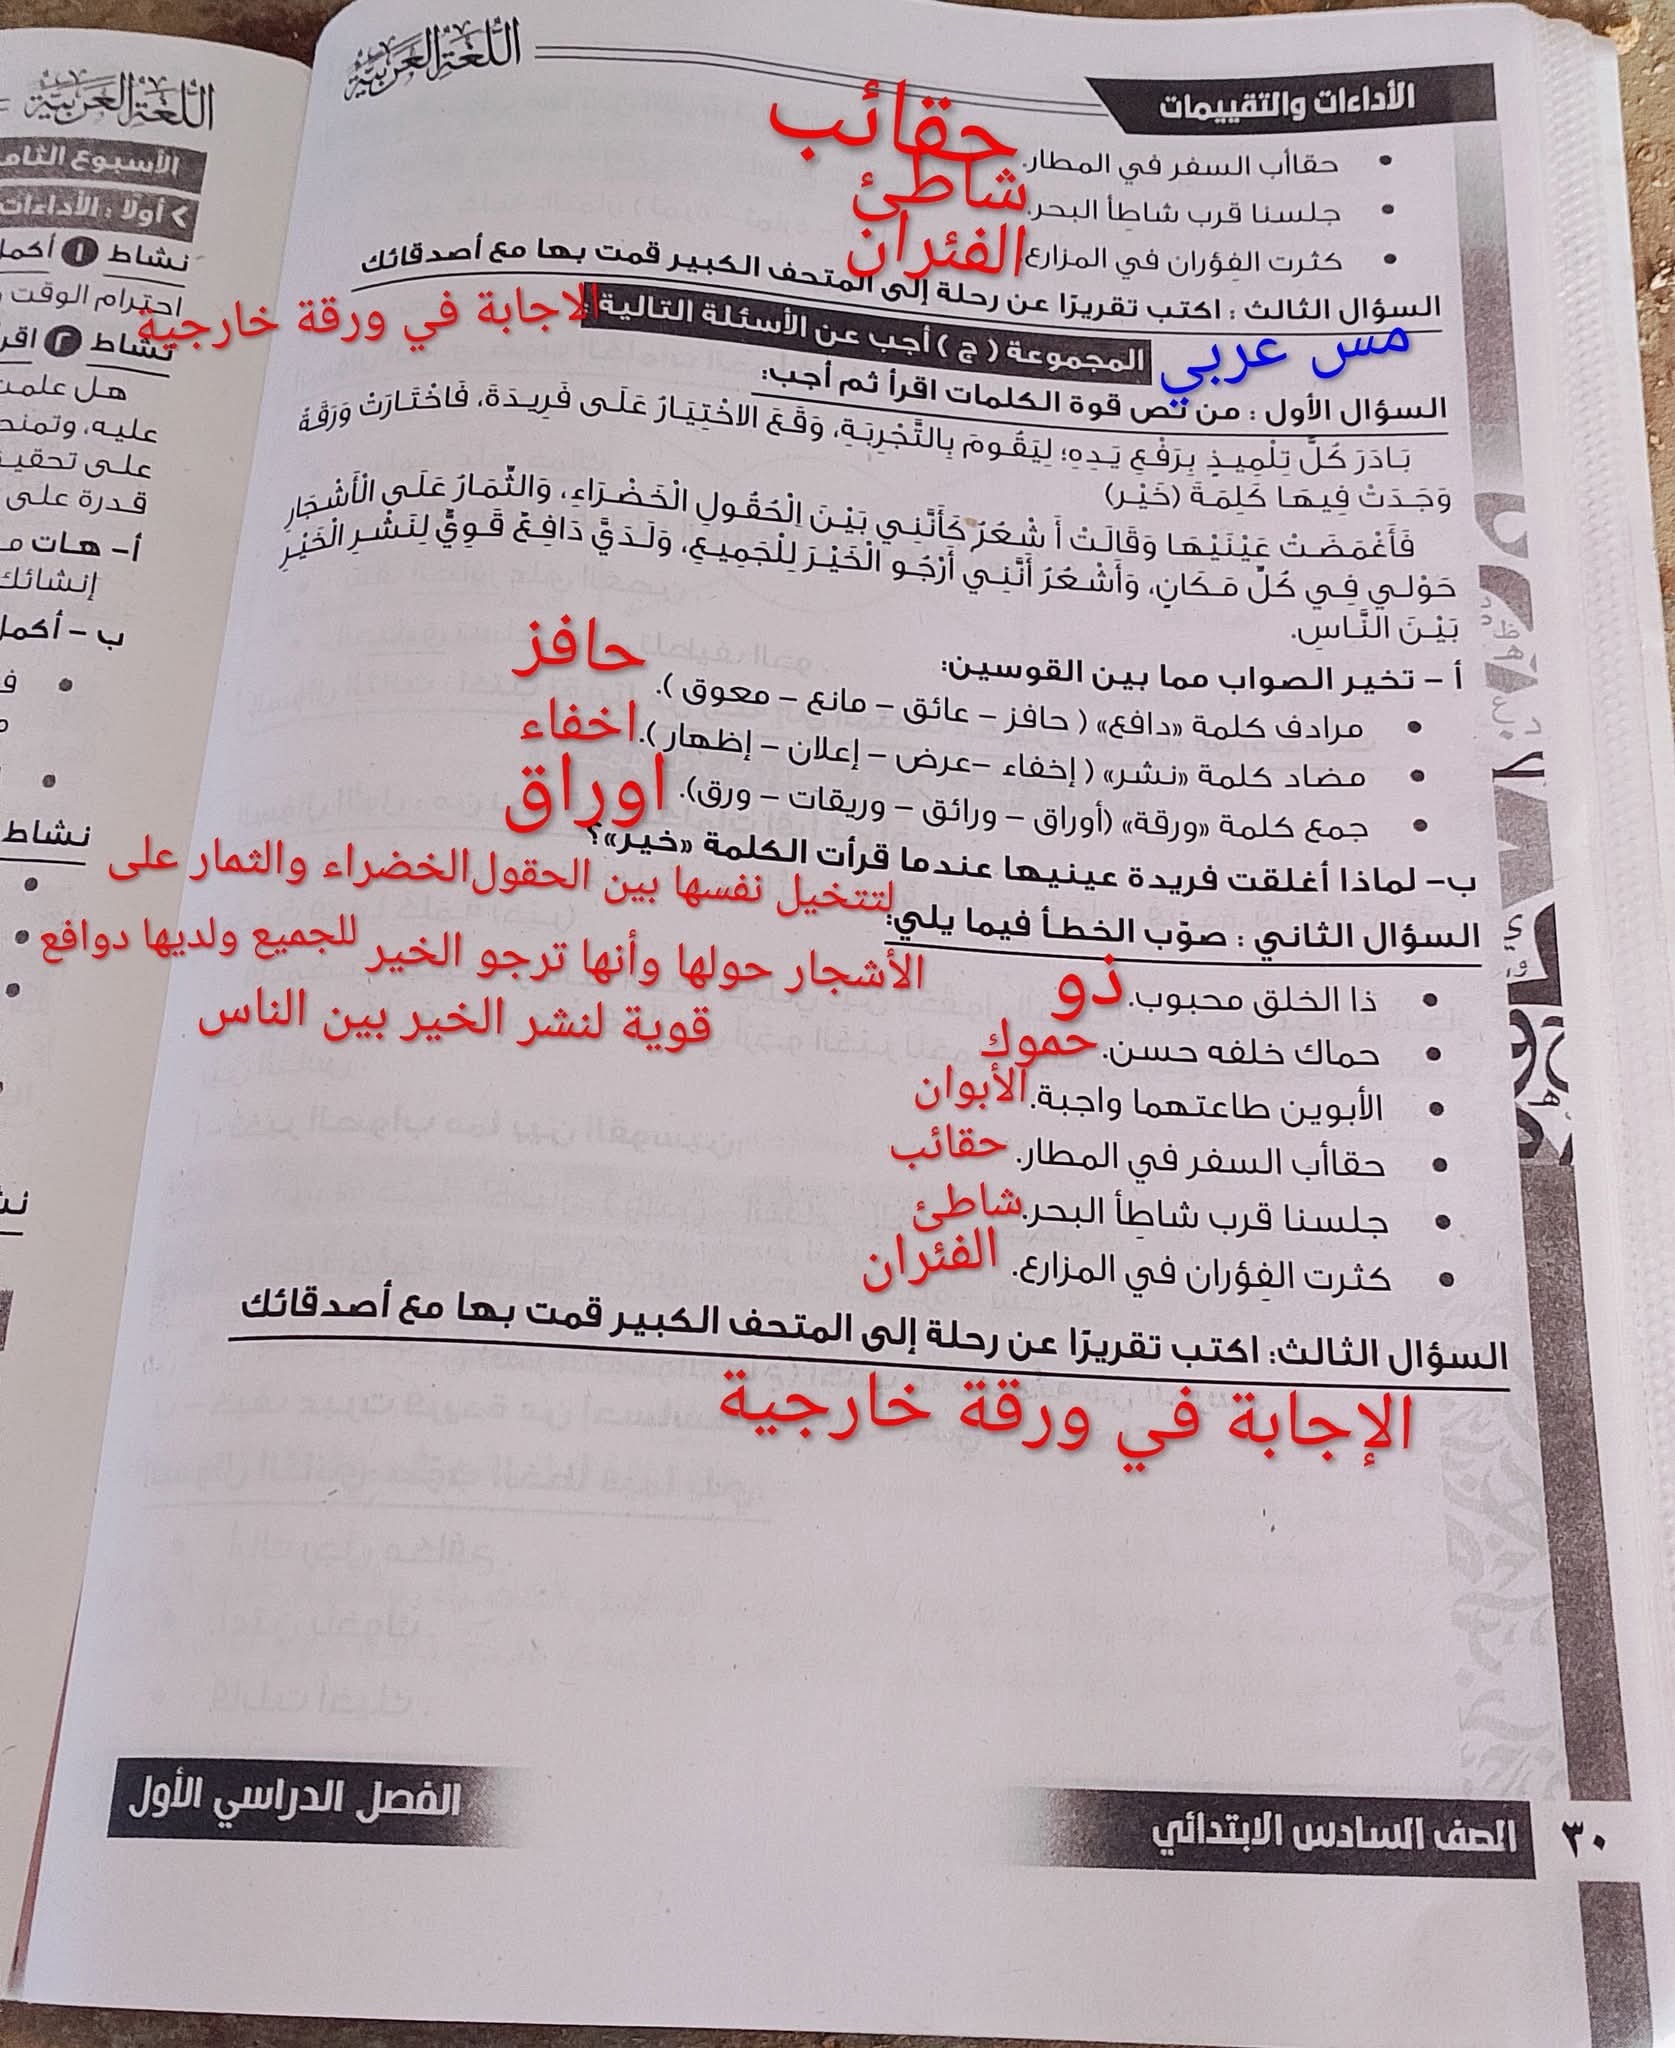 اللغة العربية
الأداءات والتقييمات
• حقاأب السفر في المطار. حقائب
• جلسنا قرب شاطأ البحر. شاطئ
• كثرت الفؤران في المزارع الفئران
السؤال الثالث : اكتب تقريرًا عن رحلة إلى المتحف الكبير قمت بها مع أصدقائك
الاجابة في ورقة خارجية
المجموعة ( ج ) أجب عن الأسئلة التالية:
مس عربي
السؤال الأول : من نص قوة الكلمات اقرأ ثم أجب:
بَادَرَ كُلُّ تِلْمِيذٍ بِرَفْعِ يَدِهِ؛ لِيَقُومَ بِالتَّجْرِبَةِ، وَقَعَ الاخْتِيَارُ عَلَى فَرِيدَةَ، فَاخْتَارَتْ وَرَقَةً
وَجَدَتْ فِيهَا كَلِمَةَ (خَيْر)
فَأَغْمَضَتْ عَيْنَيْهَا وَقَالَتْ أَ شْعُرُ كَأَنَّنِي بَيْنَ الْحُقُولِ الْخَضْرَاءِ، وَالثِّمَارُ عَلَى الْأَشْجَارِ
حَوْلي فِي كُلِّ مَكَانٍ، وَأَشْعُرُ أَنَّنِي أَرْجُو الْخَيْرَ لِلْجَمِيعِ، وَلَدَيَّ دَافِعٌ قَوِيٌّ لِنَشْرِ الْخَيْرِ
بَيْنَ النَّاسِ.
أ – تخير الصواب مما بين القوسين:
• مرادف كلمة «دافع» ( حافز – عائق – مانع – معوق ). حافز
• مضاد كلمة «نشر» ( إخفاء –عرض – إعلان – إظهار ). اخفاء
• جمع كلمة «ورقة» (أوراق – ورائق – وريقات – ورق). اوراق
ب– لماذا أغلقت فريدة عينيها عندما قرأت الكلمة «خير»؟
لتتخيل نفسها بين الحقول الخضراء والثمار على
الأشجار حولها وأنها ترجو الخير للجميع ولديها دوافع
قوية لنشر الخير بين الناس
السؤال الثاني : صوّب الخطأ فيما يلي:
• ذا الخلق محبوب. ذو
• حماك خلفه حسن. حموك
• الأبوين طاعتهما واجبة. الأبوان
• حقاأب السفر في المطار. حقائب
• جلسنا قرب شاطأ البحر. شاطئ
• كثرت الفؤران في المزارع. الفئران
السؤال الثالث: اكتب تقريرًا عن رحلة إلى المتحف الكبير قمت بها مع أصدقائك
الإجابة في ورقة خارجية
٣٠
الصف السادس الابتدائي
الفصل الدراسي الأول
اللغة العربية
الأسبوع
أولًا : الأداءات
نشاط ١
احترام الوقت
نشاط ٢
هل علمت
عليه، وتمنح
على تحقيق
قدرة على
أ– هات
إنشائك
ب – أكمل
نشاط